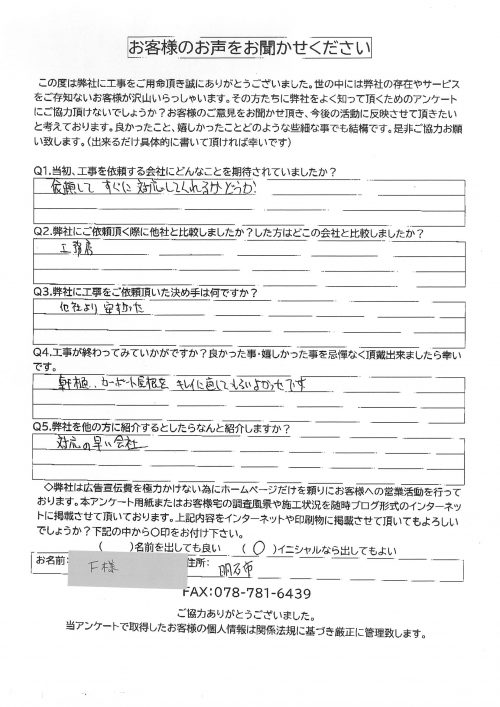 お客様のお声をお聞かせください
この度は弊社に工事をご用命頂き誠にありがとうございました。世の中には弊社の存在やサービス
をご存知ないお客様が沢山いらっしゃいます。その方たちに弊社をよく知って頂くためのアンケート
にご協力頂けないでしょうか？お客様のご意見をお聞かせ頂き、今後の活動に反映させて頂きたい
と考えております。良かったこと、嬉しかったことどのような些細な事でも結構です。是非ご協力お願
い致します。（出来るだけ具体的に書いて頂ければ幸いです）
Q1.当初、工事を依頼する会社にどんなことを期待されていましたか？
依頼して すぐに対応してくれるかどうか
Q2.弊社にご依頼頂く際に他社と比較しましたか？した方はどこの会社と比較しましたか？
工務店
Q3.弊社に工事をご依頼頂いた決め手は何ですか？
他社より安かった
Q4.工事が終わってみていかがですか？良かった事・嬉しかった事を忌憚なく頂戴出来ましたら幸い
です。
軒樋、カーポート屋根を キレイに直してもらいよかったです
Q5.弊社を他の方に紹介するとしたらなんと紹介しますか？
対応の早い会社
◇弊社は広告宣伝費を極力かけない為にホームページだけを頼りにお客様への営業活動を行って
おります。本アンケート用紙またはお客様宅の調査風景や施工状況を随時ブログ形式のインターネッ
トに掲載させて頂いております。上記内容をインターネットや印刷物に掲載させて頂いてもよろしい
でしょうか？下記の中から〇印をお付け下さい。
（　）名前を出しても良い　（〇）イニシャルなら出してもよい
お名前： F様 住所： 明石市
FAX：078-781-6439
ご協力ありがとうございました。
当アンケートで取得したお客様の個人情報は関係法規に基づき厳正に管理致します。